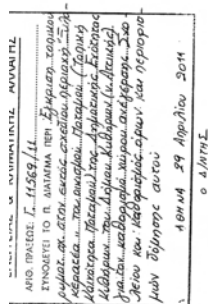 & ΚΛΙΜΑΤΙΚΗΣ ΑΛΛΑΓΗΣ
ΑΡΙΘ. ΠΡΑΞΕΩΣ: Γ. 11569/11
ΣΥΝΟΔΕΥΕΙ ΤΟ Π. ΔΙΑΤΑΓΜΑ ΠΕΡΙ Έγκριση τοπικού
ρυμοτ. σχ. στην εκτός σχεδίου περιοχή
του οικισμού Ποταμού (Τοπική
Κοινότητα Ποταμού) της Δημοτικής Ενότητας
Κυθήρων του Δήμου Κυθήρων (ν. Αττικής)
για τον καθορισμό χώρου ανέγερσης Σχο
λείου και καθορισμός όρων και περιορισ
μών δόμησης αυτού
ΑΘΗΝΑ 29 Απριλίου 2011
Ο Δ/ΝΤΗΣ